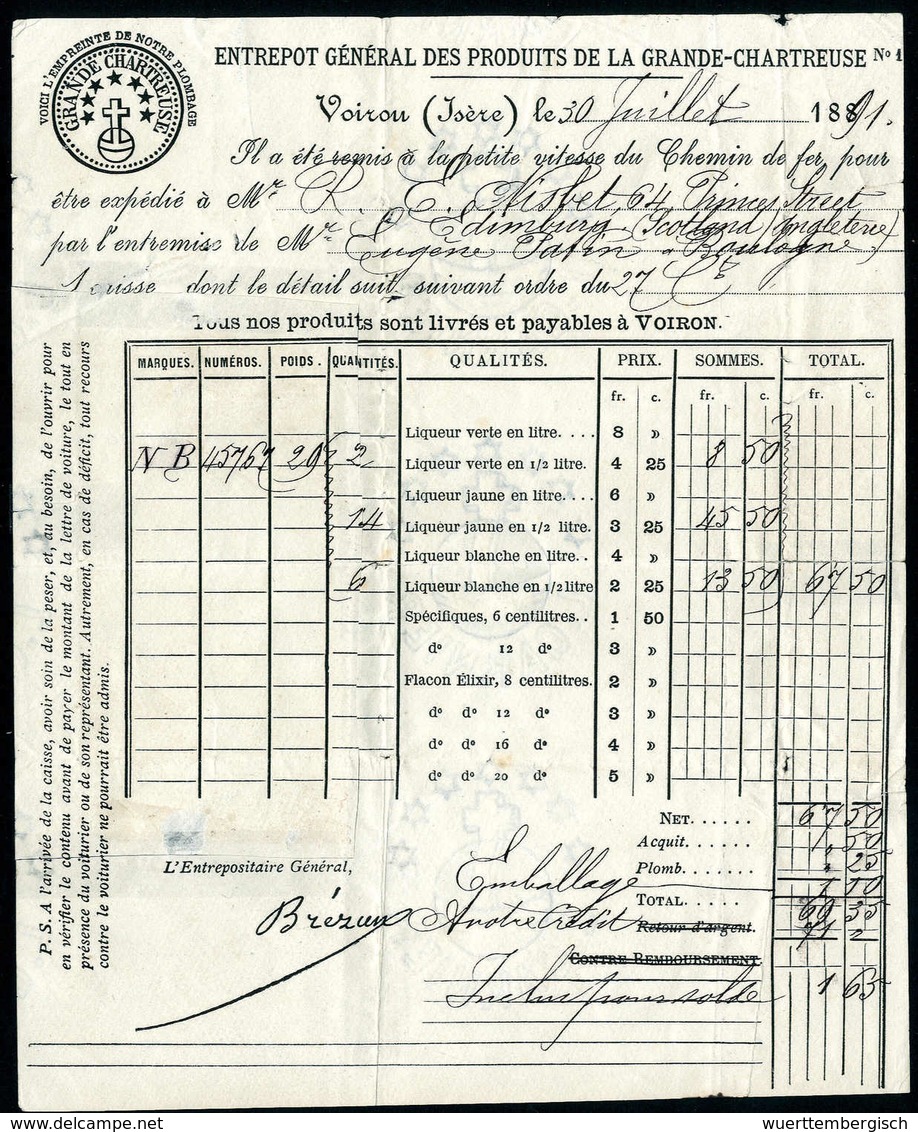 VOICI L'EMPREINTE DE NOTRE PLOMBAGE
GRANDE CHARTREUSE
ENTREPOT GÉNÉRAL DES PRODUITS DE LA GRANDE-CHARTREUSE No 1
Voiron (Isère) le 30 Juillet 1891.
Il a été remis à la petite vitesse du Chemin de fer, pour
être expédié à Mr R. E. Nisbet, 64 Princes Street
Edimburg Scotland (Ingleterie)
par l'entremise de Mr Eugène Patin à Boulogne
1 caisse dont le détail suit, suivant ordre du 27 Ct
Tous nos produits sont livrés et payables à VOIRON.
MARQUES. NUMÉROS. POIDS. QUANTITÉS. QUALITÉS. PRIX. SOMMES. TOTAL.
fr. c. fr. c. fr. c.
Liqueur verte en litre.... 8 »
N B 45767 20 2 Liqueur verte en 1/2 litre. 4 25 8 50
Liqueur jaune en litre... 6 »
14 Liqueur jaune en 1/2 litre. 3 25 45 50
Liqueur blanche en litre.. 4 »
6 Liqueur blanche en 1/2 litre 2 25 13 50 67 50
Spécifiques, 6 centilitres.. 1 50
do 12 do 3 »
Flacon Élixir, 8 centilitres. 2 »
do do 12 do 3 »
do do 16 do 4 »
do do 20 do 5 »
NET...... 67 50
Acquit...... 50
Plomb...... 25
Emballage 1 10
TOTAL..... 69 35
A votre Crédit Retour d'argent. 71 2
CONTRE REMBOURSEMENT
Inclus pour solde 1 65
L'Entrepositaire Général,
Brézun
P. S. A l'arrivée de la caisse, avoir soin de la peser, et, au besoin, de l'ouvrir pour
en vérifier le contenu avant de payer le montant de la lettre de voiture, le tout en
présence du voiturier ou de son représentant. Autrement, en cas de déficit, tout recours
contre le voiturier ne pourrait être admis.
wuerttembergisch